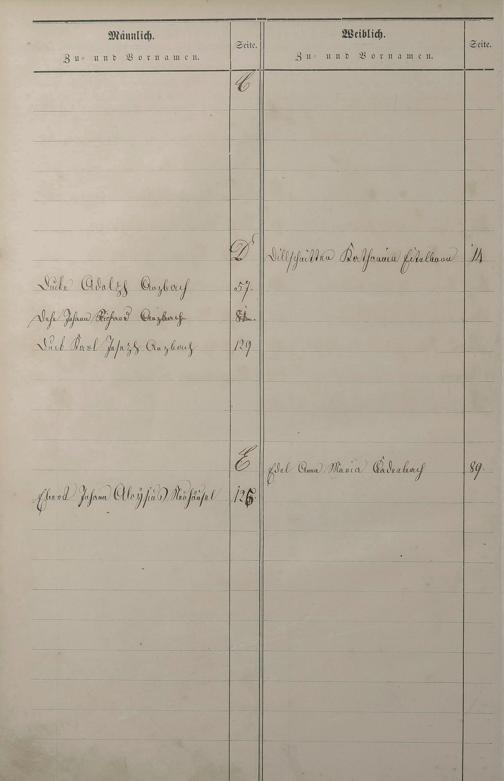 Männlich.
Zu- und Vornamen.
Seite.
Weiblich.
Zu- und Vornamen.
Seite.
C
D
Dillschnitter Katharina Eitelborn 14
Adolph Arzbach 57.
Johann Richard Arzbach
Karl Joseph Arzbach 129
E
Edel Anna Maria Cadenbach 89.
Ebert Johann Aloysius Neuhäusel 126